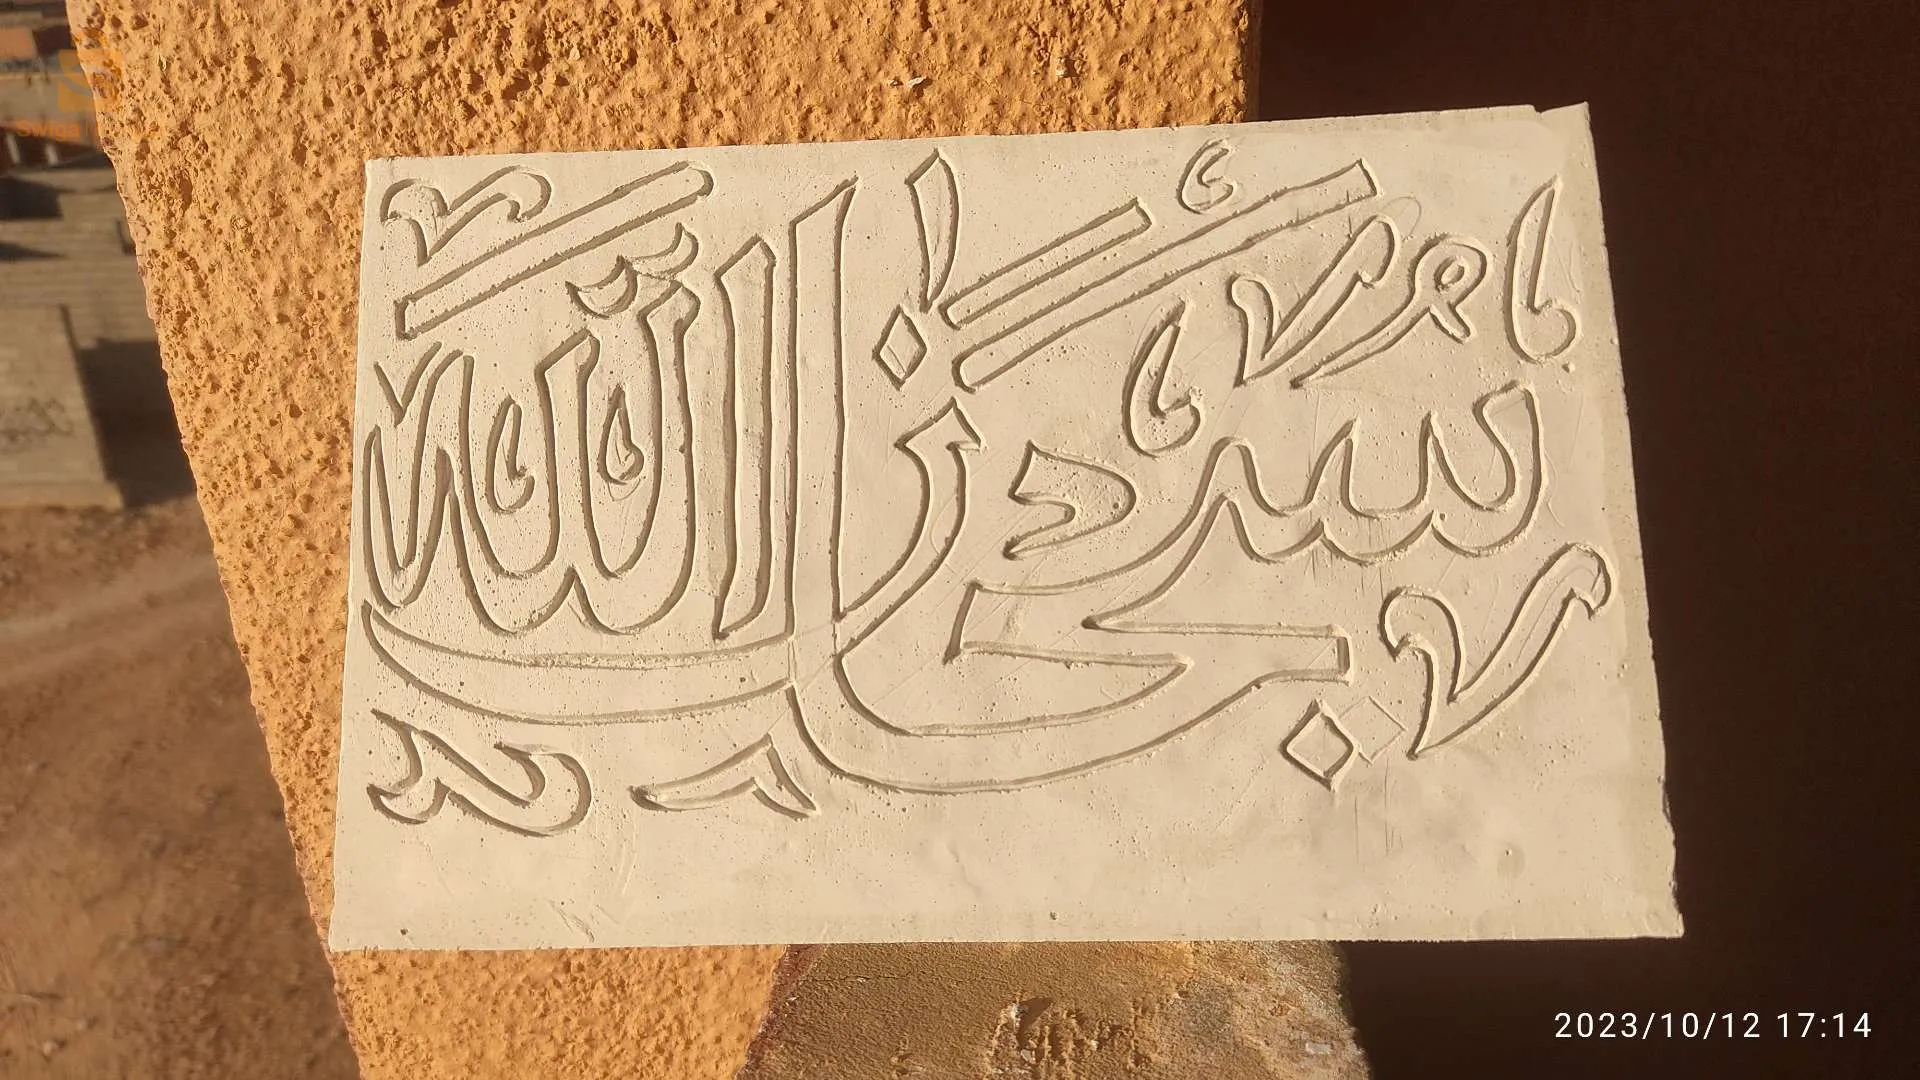 سبحان الله
2023/10/12 17:14